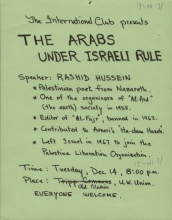 The International Club presents
THE ARABS
UNDER ISRAELI RULE
Speaker: RASHID HUSSEIN
* Palestinian poet from Nazareth.
* One of the organizers of "Al-Ard"
(the earth) society in 1958.
* Editor of "Al-Fajr", banned in 1962.
* Contributed to Avneri's Ha-olam Hazeh.
* Left Israel in 1967 to join the
Palestine Liberation Organization.
Time: Tuesday, Dec. 14, 8:00 p.m.
Place: Tripp Commons, U.W. Union
Old Madison
EVERYONE WELCOME.